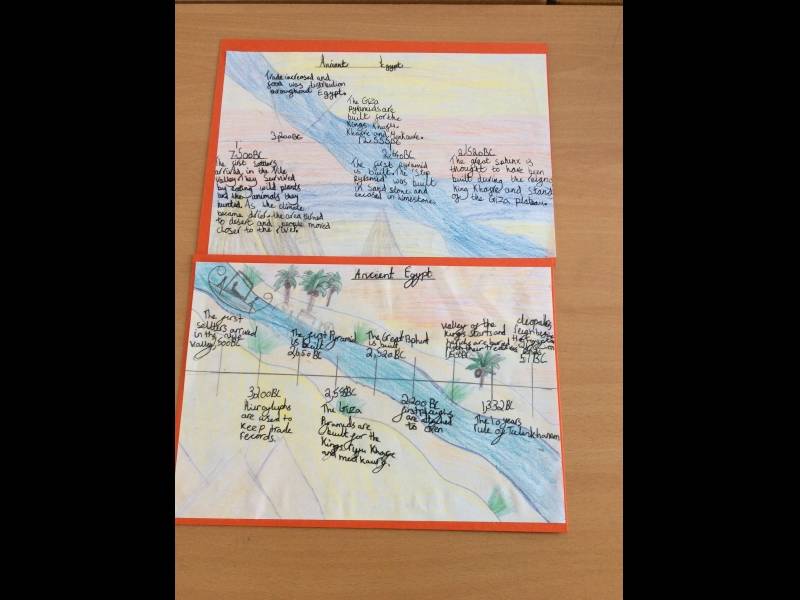 Ancient Egypt
Trade increased and
food was distribution
throughout Egypt.
3,200BC
The Giza
pyramids are
built for the
Kings Khufu,
Khafre and Menkaure.
7,500BC
The first settlers
arrived in the Nile
Valley. They survived
by eating wild plants
and the animals they
hunted. As the climate
became drier the area turned
to desert and people moved
closer to the river.
The first pyramid
is built. The Step
pyramid was built
in Sand stone and
encased in limestone
2,520BC
The great sphinx is
thought to have been
built during the reign of
King Khafre and stands
of the Giza plateau.
Ancient Egypt
The first
settlers arrived
in the Nile
Valley
The first Pyramid
is built
2,650BC
The Great
is built
2,520BC
Valley of the
Kings starts and
are buried
with their treasures
cleopatra
51BC
3,200BC
Hieroglyphs
are used to
keep trade
records.
The Giza
Pyramids are
built for the
Kings Khafre
and
2,200BC
first ploughs
are attached
to oxen
1,332BC
The 10 years
rule of Tutankhamen